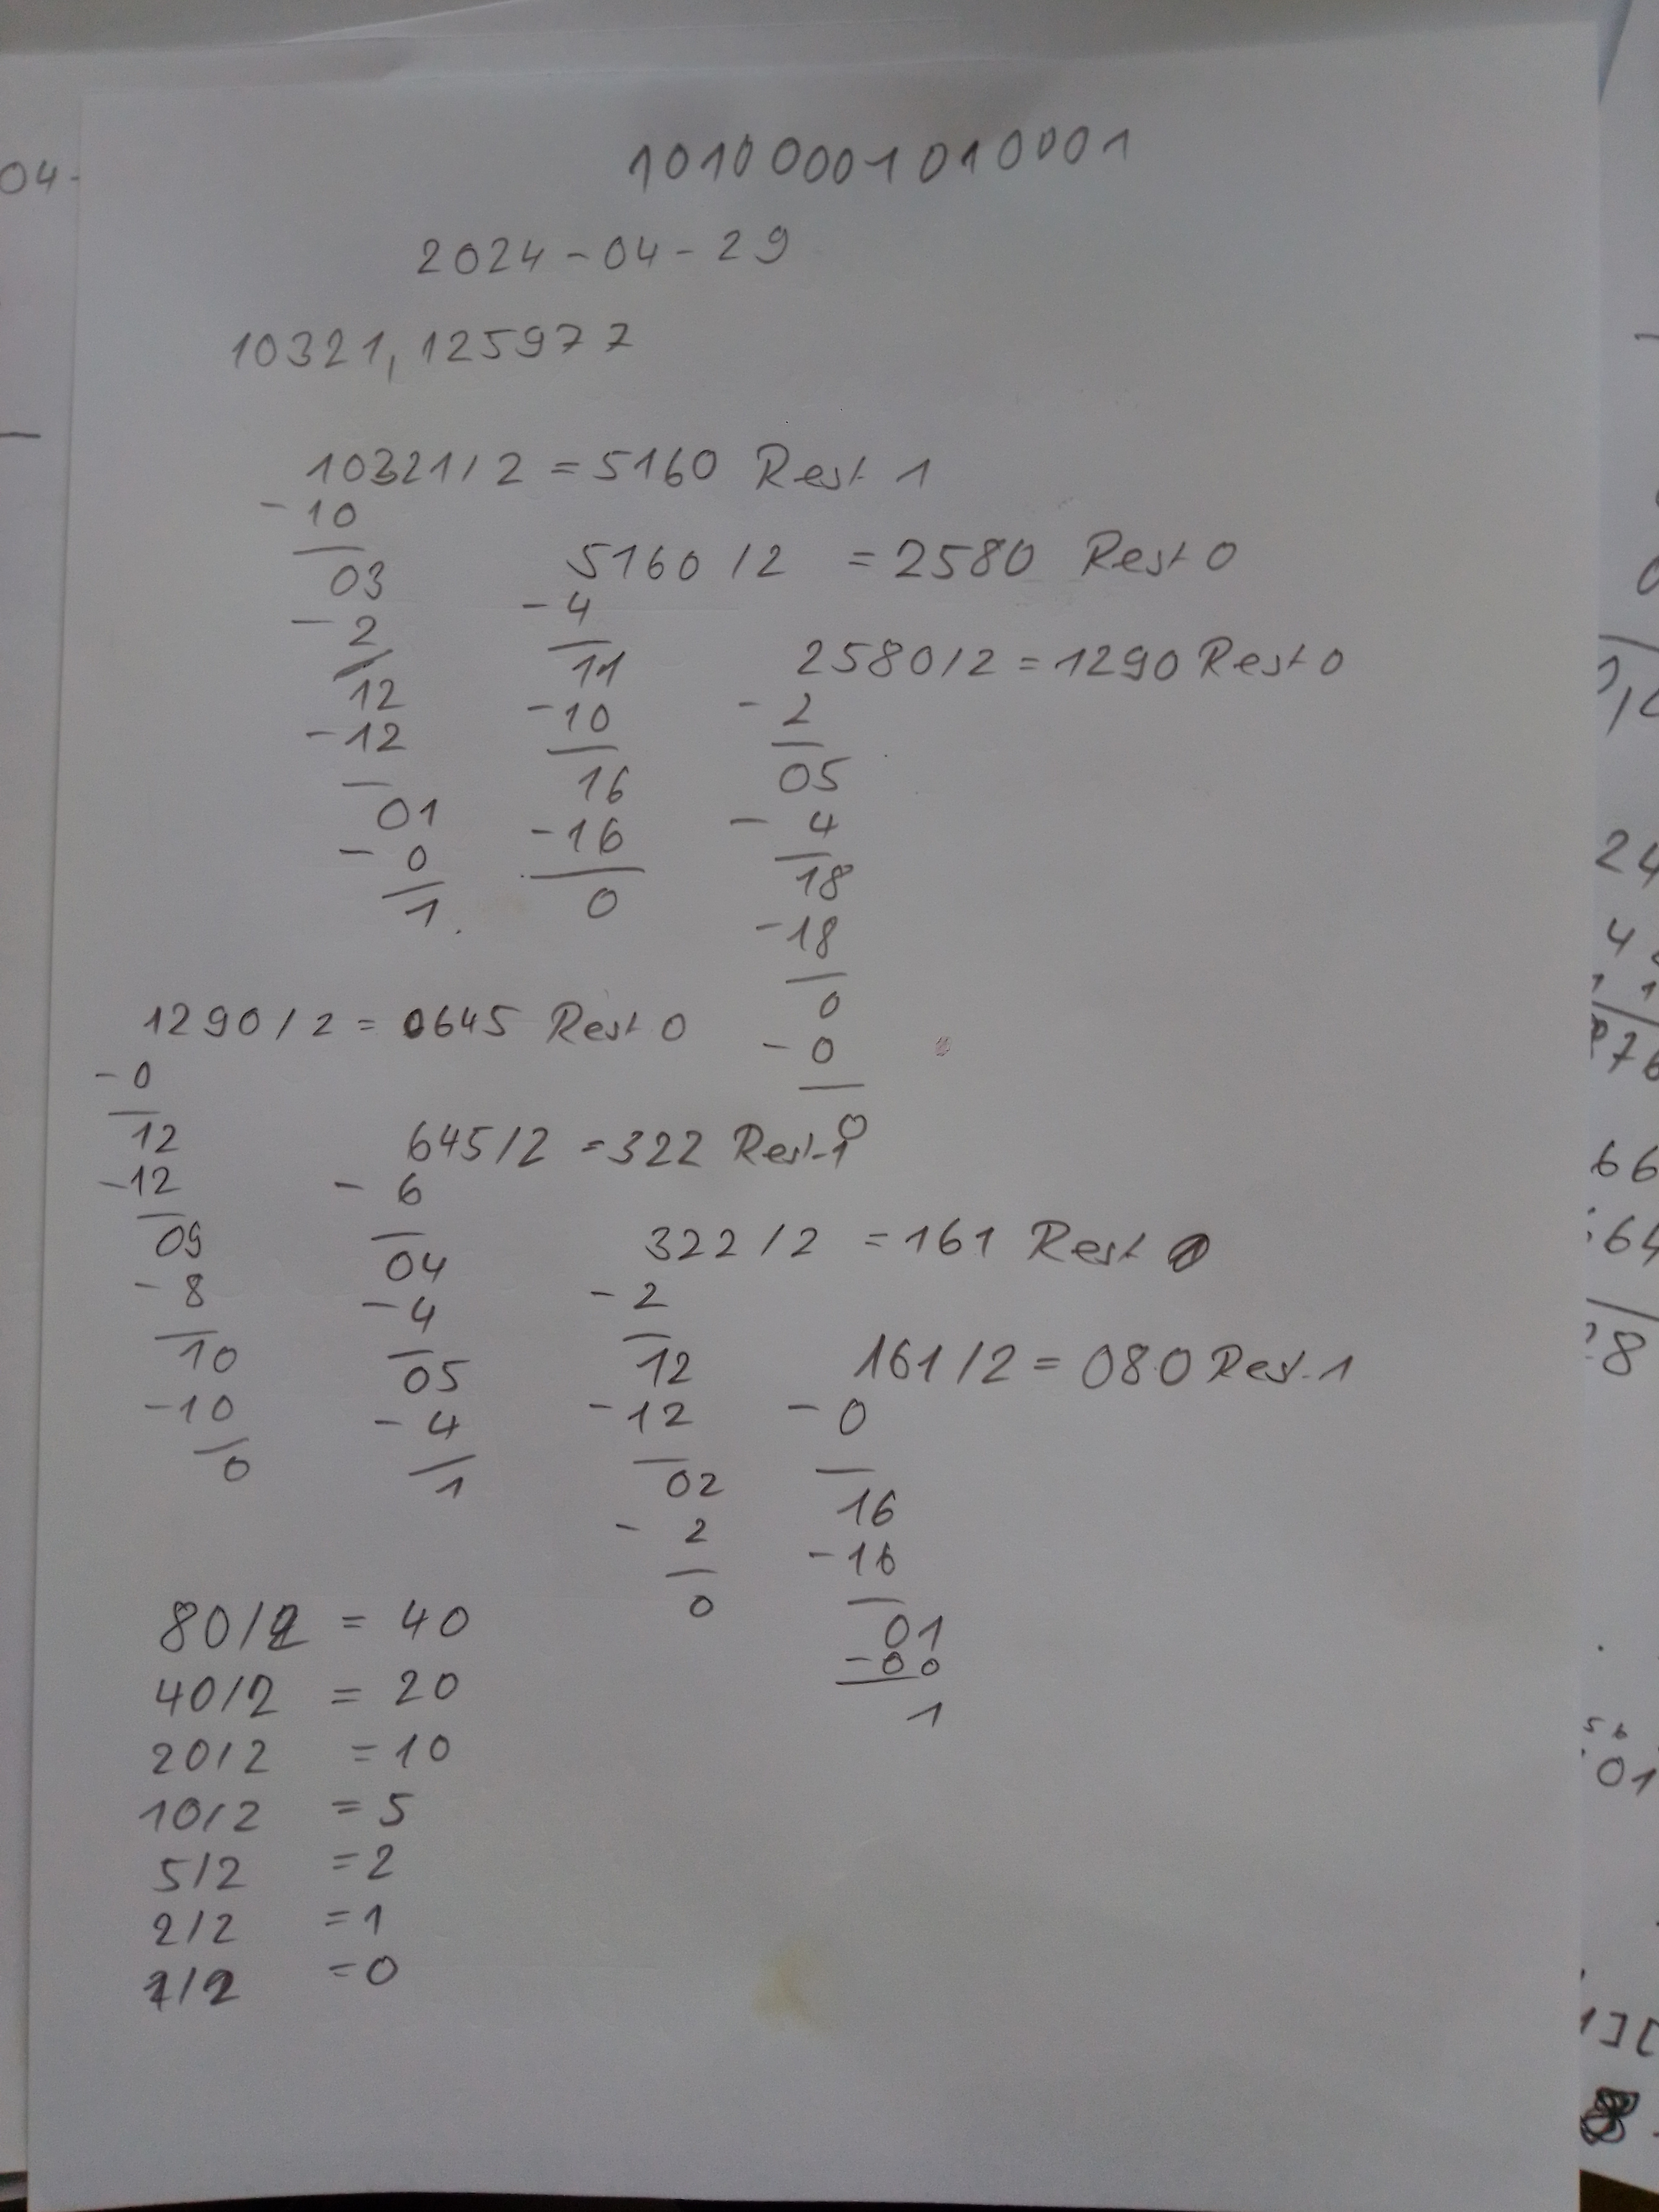 10100001010001
2024-04-29
10321,125977
10321/2 = 5160 Rest 1
-10
03
-2
12
-12
01
-0
1
5160/2 = 2580 Rest 0
-4
11
-10
16
-16
0
2580/2 = 1290 Rest 0
-2
05
-4
18
-18
0
-0
0
1290/2 = 0645 Rest 0
-0
12
-12
09
-8
10
-10
0
645/2 = 322 Rest 1
-6
04
-4
05
-4
1
322/2 = 161 Rest 0
-2
12
-12
02
-2
0
161/2 = 080 Rest 1
-0
16
-16
01
-00
1
80/2 = 40
40/2 = 20
20/2 = 10
10/2 = 5
5/2 = 2
2/2 = 1
1/2 = 0
04-
24
66
64
8
01